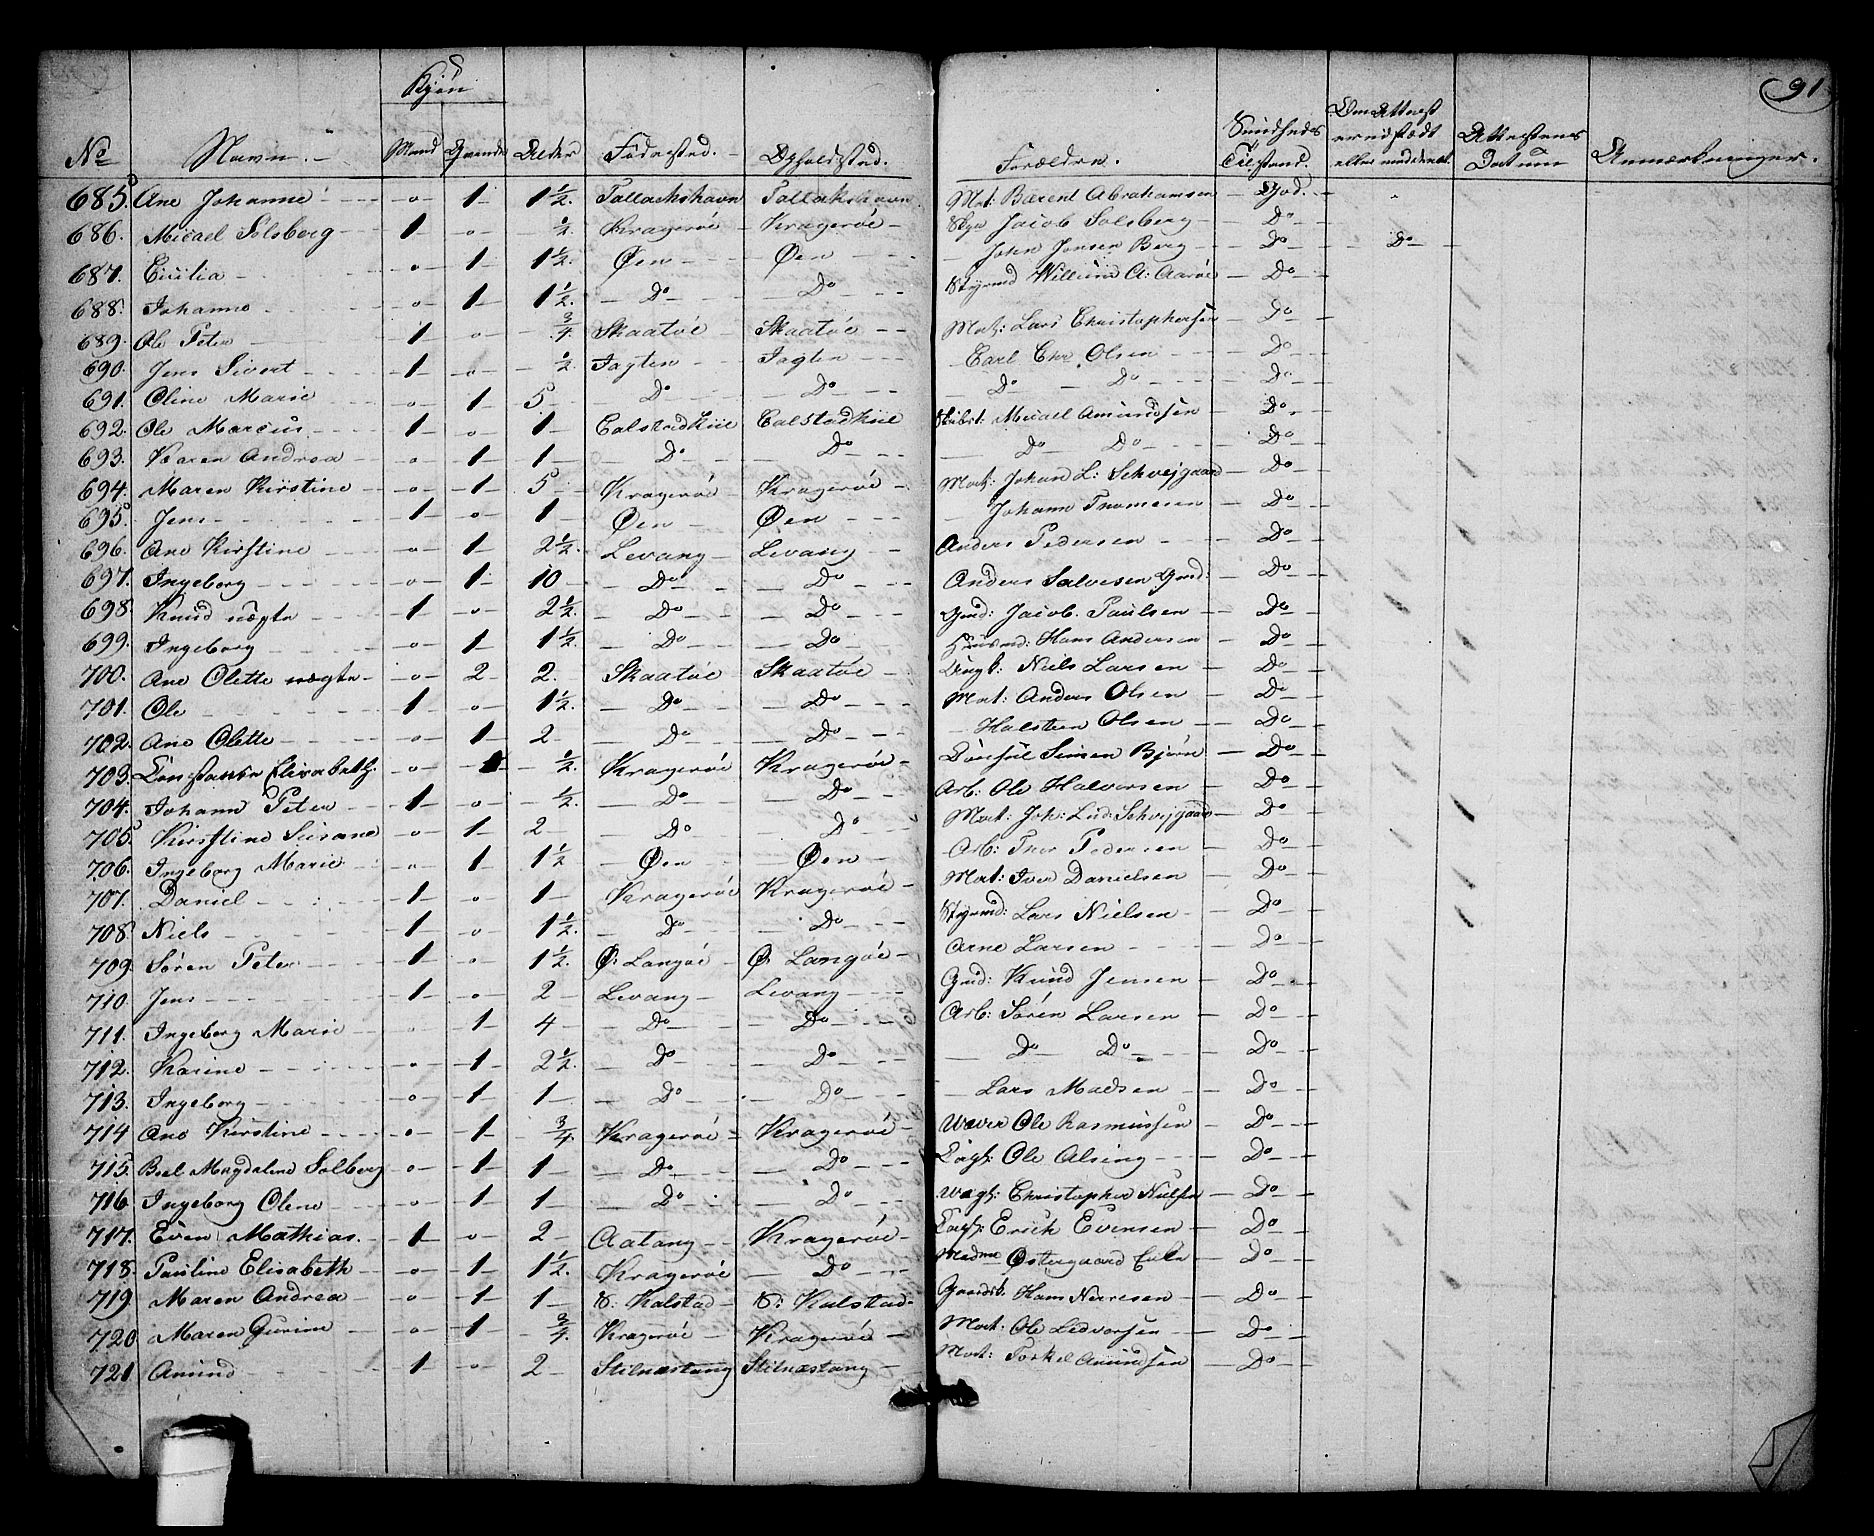 91
Kjøn
No Navn. Mand Qvinde Alder Fødested. Opholdsted. Forældre. Sundheds Tilstand. Om Attest er udstædt eller meddeelt. Attestens Datum Anmærkninger.
685. Ane Johanne -o- 1 1½. Tallackshavn Tallakshavn Mat: Bærent Abrahamsen God.
686. Micael Solberg 1 -o- ½ Kragerøe Kragerøe Jacob Solberg Do
687. Cicilia -o- 1 1½. Øen Øen John Jonsen Berg Do Do
688. Johanne -o- 1 1½. Do Do Styrmd Willum A: Aarøe Do
689. Ole Peter 1 -o- ¾ Skaatøe Skaatøe Mat: Lars Christophersen Do
690. Jens Sivert 1 -o- ½ Jagten Jagten Carl Chr Olsen Do
691. Oline Marie -o- 1 5 Do Do Do Do Do
692. Ole Marcus 1 -o- 1 Calstadkiil Calstadkiil Micael Amundsen Do
693. Karen Andrea -o- 1 1 Do Do Do Do Do
694. Maren Kirstine -o- 1 5 Kragerøe Kragerøe Mat: Johan L: Schvejgaard Do
695. Jens 1 -o- 1 Øen Øen Johann Thomesen Do
696. Ane Kirstine -o- 1 2½. Levang Levang Anders Pedersen Do
697. Ingeborg -o- 1 10 Do Do Anders Salvesen Gmd: Do
698. Knud uægte 1 -o- 2½. Do Do Gmd: Jacob Paulsen Do
699. Ingeborg -o- 1 1½. Do Do Huusmd: Hans Andersen Do
700. Ane Olette uægte -o- 2 2. Skaatøe Skaatøe Niels Larsen Do
701. Ole 1 -o- 1½. Do Do Mat: Anders Olsen Do
702. Ane Olette -o- 1 2 Do Do Halsteen Olsen Do
703. Constance Elisabeth. -o- 1 ½ Kragerøe Kragerøe Consul Simen Bjørn Do
704. Johann Peter 1 -o- ½. Do Do Arb: Ole Halvorsen Do
705. Kirstine Susane -o- 1 2 Do Do Mat: Joh: Lud: Schvejgaard Do
706. Ingeborg Marie -o- 1 1½ Øen Øen Arb: Thor Pedersen Do
707. Daniel 1 -o- 1 Kragerøe Kragerøe Mat: Iver Danielsen Do
708. Niels 1 -o- 1½. Do Do Styrmd: Lars Nielsen Do
709. Søren Peter 1 -o- 1½. Ø: Langøe Ø: Langøe Arne Larsen Do
710. Jens 1 -o- 2 Levang Levang Gmd: Knud Jensen Do
711. Ingeborg Marie -o- 1 4 Do Do Arb: Søren Larsen Do
712. Karine -o- 1 2½. Do Do Do Do Do
713. Ingeborg -o- 1 1 Do Do Lars Madsen Do
714 Ane Kirstine -o- 1 ¾ Kragerøe Kragerøe Ole Rasmussen Do
715. Berl Magdaline Solberg -o- 1 1 Do Do Ole Alsing Do
716 Ingeborg Olene -o- 1 1 Do Do Christopher Nielsen Do
717. Even Mathias. 1 -o- 2 Aatang Kragerøe Erich Evensen Do
718. Pauline Elisabeth -o- 1 1½. Kragerøe Do Madme Østergaard Do
719 Maren Andrea -o- 1 1 V: Kalstad V: Kalstad Hans Do
720. Maren Gurine -o- 1 ¾ Kragerøe Kragerøe Mat: Ole Ledvorsen Do
721 Amund 1 -o- 2 Stilnæstang Stilnæstang Mat: Torkel Amundsen Do